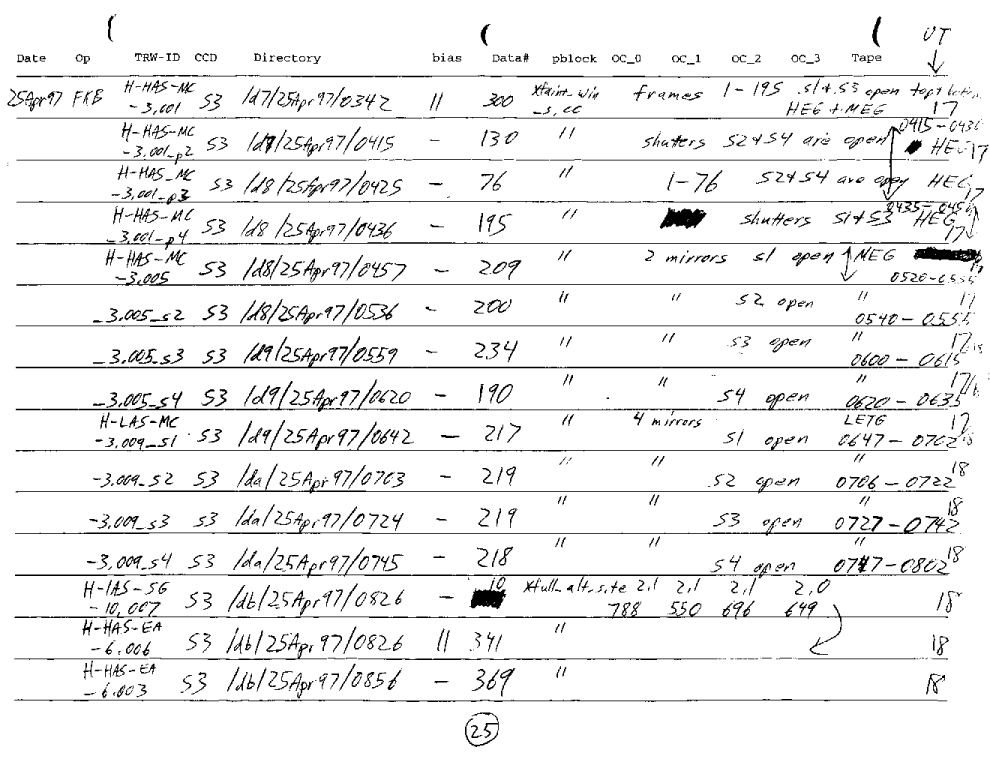 UT
Date Op TRW-ID CCD Directory bias Data# pblock OC_0 OC_1 OC_2 OC_3 Tape
25Apr97 FKB H-HAS-MC -3.001 S3 /d7/25Apr97/0342 11 300 Xfaint_win _s,cc frames 1-195 s1+s3 open HEG + MEG 17
H-HAS-MC -3.001_p2 S3 /d8/25Apr97/0415 - 130 " shutters S2+S4 are open 0415-0436 HEG 17
H-HAS-MC -3.001_p3 S3 /d8/25Apr97/0425 - 76 " 1-76 S2+S4 are open HEG 17
H-HAS-MC -3.001_p4 S3 /d8/25Apr97/0436 - 195 " shutters S1+S3 0435-0456 HEG 17
H-HAS-MC -3.005 S3 /d8/25Apr97/0457 - 209 " 2 mirrors s1 open MEG 0520-0535
-3.005_s2 S3 /d8/25Apr97/0536 - 200 " " S2 open " 17 0540-0555
-3.005_s3 S3 /d9/25Apr97/0559 - 234 " " S3 open " 17/18 0600-0615
-3.005_s4 S3 /d9/25Apr97/0620 - 190 " " S4 open " 0620-0635
H-LAS-MC -3.009_s1 S3 /d9/25Apr97/0642 - 217 " 4 mirrors S1 open LETG 0647-0702 17 18
-3.009_s2 S3 /da/25Apr97/0703 - 219 " " S2 open " 0706-0722 18
-3.009_s3 S3 /da/25Apr97/0724 - 219 " " S3 open " 0727-0742 18
-3.009_s4 S3 /da/25Apr97/0745 - 218 " " S4 open " 0747-0802 18
H-IAS-SG -10.007 S3 /db/25Apr97/0826 - 10 Xfull_alt_s.te 2,1 2,1 2,1 2,0 788 550 696 649 18
H-HAS-EA -6.006 S3 /db/25Apr97/0826 11 341 " 18
H-HAS-EA -6.003 S3 /db/25Apr97/0856 - 369 " 18
25